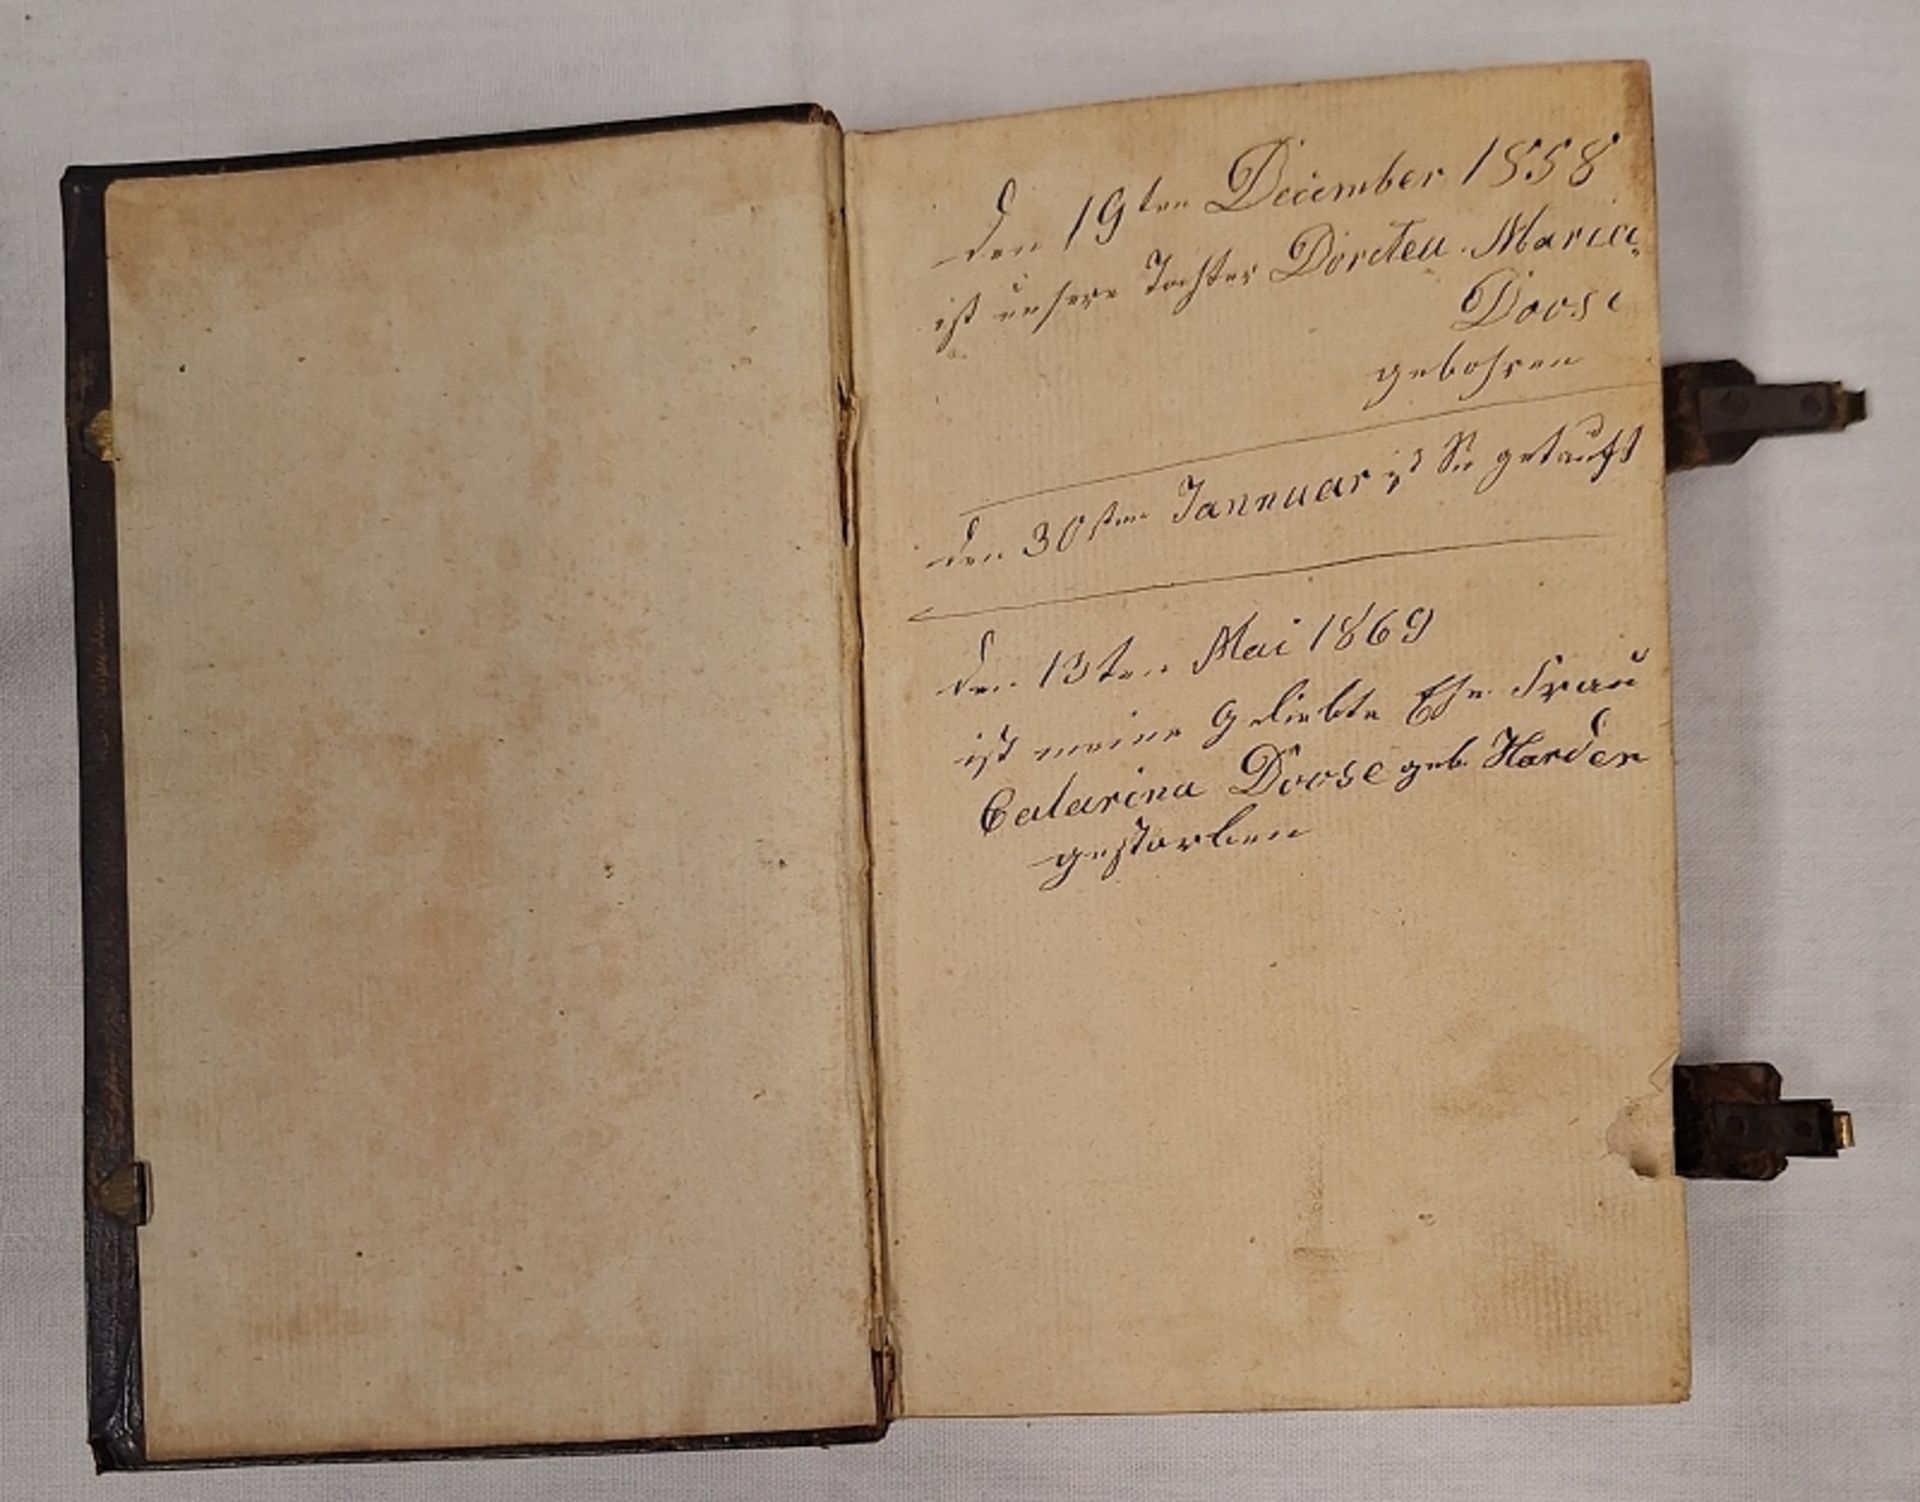 den 19ten December 1858
ist unsere Tochter Doretea Maria
Doose
gebohren
den 30sten Jannuar ist Sie getauft
den 13ten Mai 1869
ist meine Geliebte Ehe Frau
Catarina Doose geb. Harder
gestorben